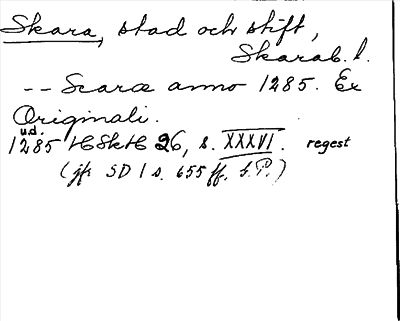 Skara, stad och stift,
Skarab. l.
-- Scaræ anno 1285. Ex
Originali.
u.d.
1285 HSkH 26, s. XXXVI. regest
(jfr SD 1 s. 655 ff. )